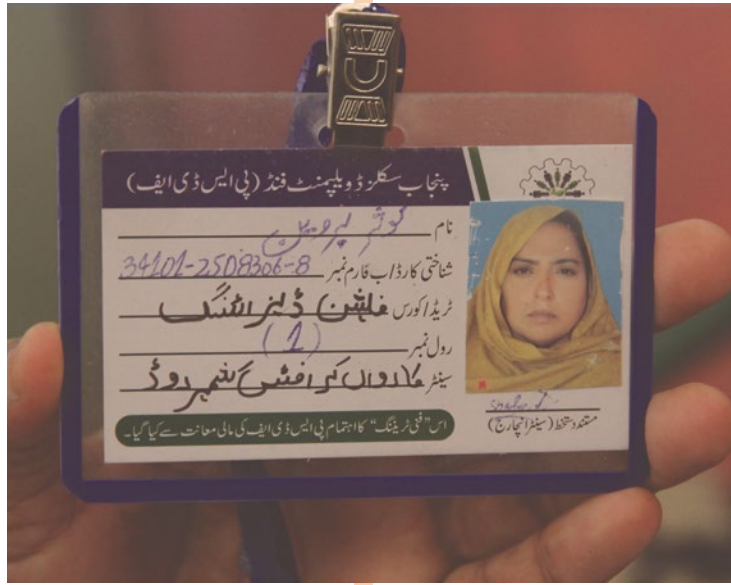 پنجاب سکلز ڈویلپمنٹ فنڈ (پی ایس ڈی ایف)
نام کوثر پروین
شناختی کارڈ/ب فارم نمبر 34101-2508306-8
ٹریڈ/کورس فیشن ڈیزائننگ
رول نمبر (1)
سینٹر کاروان کرافٹس کشمیر روڈ
مستند دستخط (سینٹر انچارج)
اس "فنی ٹریننگ" کا اہتمام پی ایس ڈی ایف کی مالی معانت سے کیا گیا۔